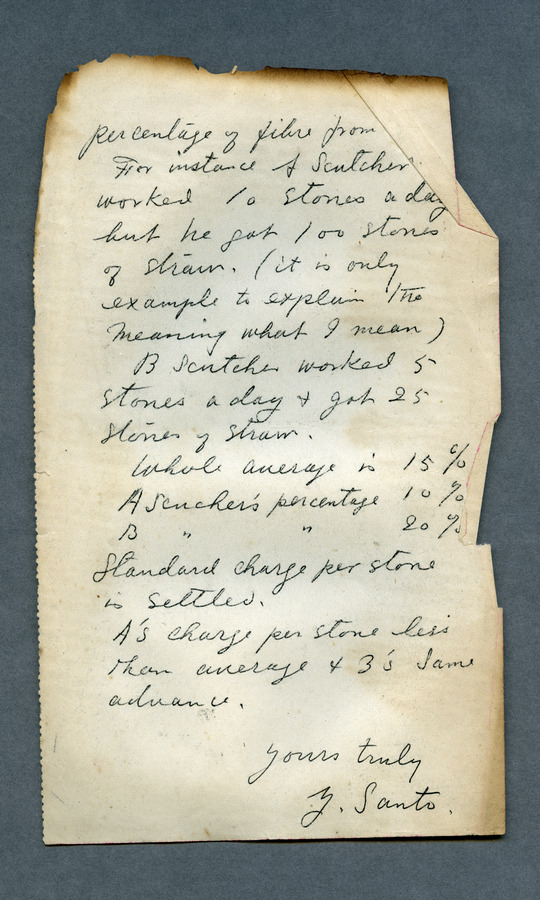 percentage of fibre from
For instance A Scutcher
worked 10 stones a day
but he got 100 stones
of straw. (it is only
example to explain the
meaning what I mean)
B Scutcher worked 5
stones a day & got 25
stones of straw.
Whole average is 15 %
A Scucher's percentage 10 %
B " " 20 %
Standard charge per stone
is settled.
A's charge per stone less
than average & B's same
advance.
Yours truly
Y. Santo.